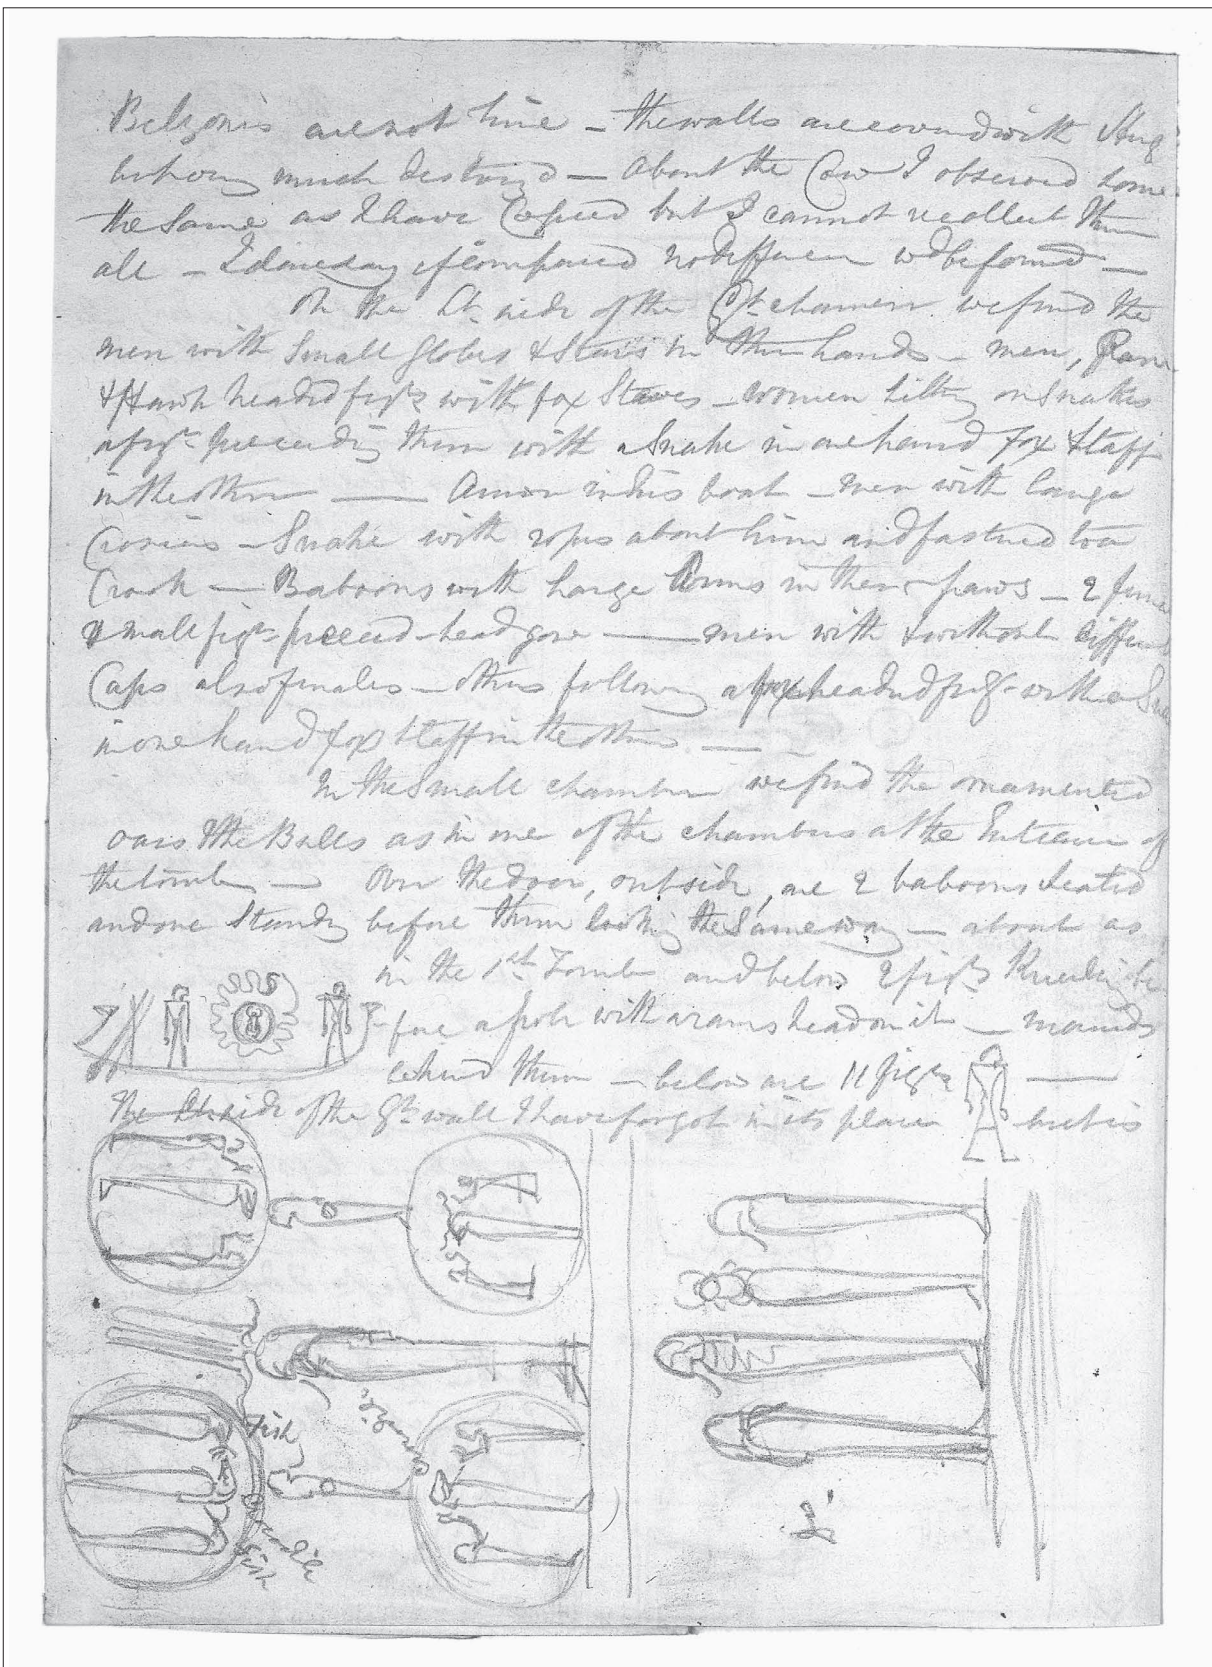 Belzonis are not here – the walls are covered with
but being much destroyed – about the Cow I observed some
the same as I have Copied but I cannot recollect them
all – I daresay if compared no difference wd be found –
On the Lt. side of the Gt. chamber we find the
men with Small globes & Stars in their hands – men, Ram
& Hawk headed figs with fox Staves – women sitting on Snakes
a fig. preceeding them with a Snake in one hand fox Staff
in the other — Amon in his boat – men with large
Crosiers – Snake with ropes about him and fastned to a
Crook – Baboons with large in their paws – 2
small figs. preceed – head gone — men with & without
Caps also females – others following a fox headed fig – with a
in one hand fox Staff in the other —
In the Small chamber we find the ornamented
oars & the Bulls as in one of the chambers at the Entrance of
the tomb — Over the door, outside, are 2 baboons Seated
and one Standg before them looking the Same way – about as
in the 1st. Tomb and below 2 figs Kneeling be
fore a pole with a rams head on it –
behind them – below are 11 figs —
The side of the Gt. wall I have forgot in its place but is
fish
fish
2